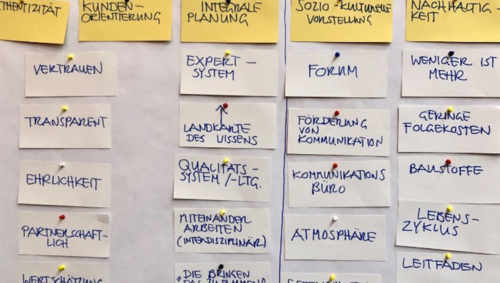 THENTIZITÄT
KUNDEN-
ORIENTIERUNG
INTEGRALE
PLANUNG
SOZIO-KULTURELLE
VORSTELLUNG
NACHHALTIG-
KEIT
VERTRAUEN
TRANSPARENT
EHRLICHKEIT
PARTNERSCHAFT-
LICH
WERTSCHÄTZUNG
EXPERT-
SYSTEM
LANDKARTE
DES WISSENS
QUALITÄTS-
SYSTEM/-LTG.
MITEINANDER
ARBEITEN
(INTERDISZIPLINÄR)
"DIE BRINGEN
FORUM
FÖRDERUNG
VON
KOMMUNIKATION
KOMMUNIKATIONS
BÜRO
ATMOSPHÄRE
WENIGER IST
MEHR
GERINGE
FOLGEKOSTEN
BAUSTOFFE
LEBENS-
ZYKLUS
LEITFADEN